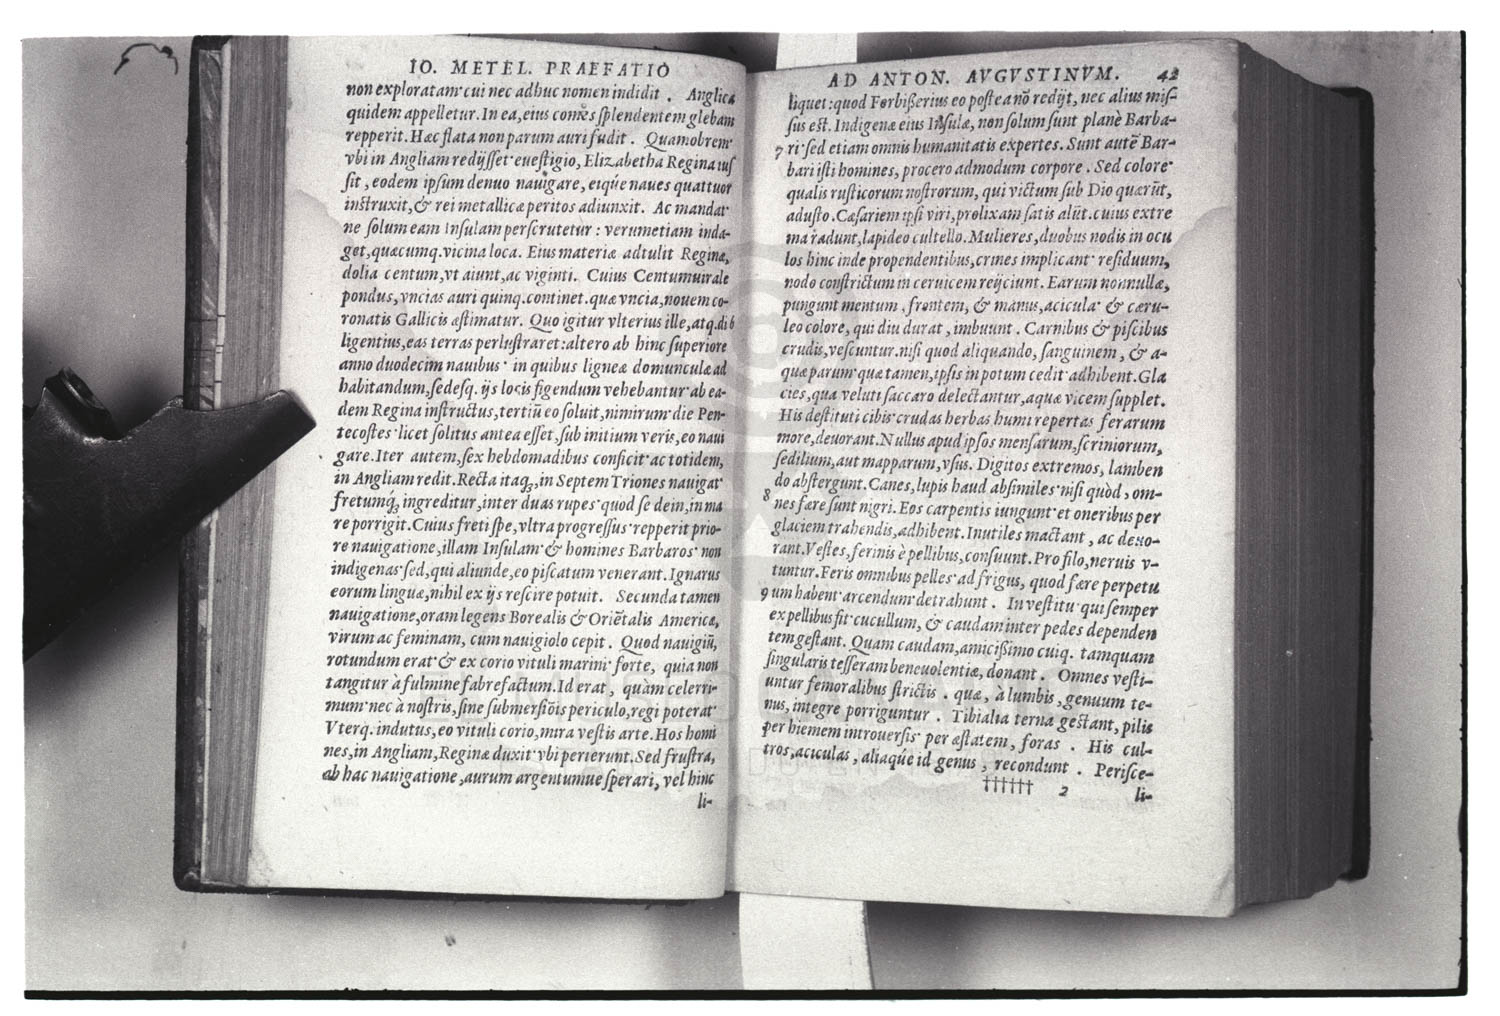 IO. METEL. PRAEFATIO
non exploratam cui nec adhuc nomen indidit . Anglica
quidem appelletur. In ea, eius comes splendentem glebam
repperit. Hæc flata non parum auri fudit . Quamobrem
vbi in Angliam redijsset euestigio, Elizabetha Regina ius
sit , eodem ipsum denuo nauigare, eiq́ue naues quattuor
instruxit, & rei metallicæ peritos adiunxit. Ac mandat
ne solum eam Insulam perscrutetur : verumetiam inda-
get, quæcumq. vicina loca. Eius materiæ adtulit Reginæ,
dolia centum, vt aiunt, ac viginti. Cuius Centumuirale
pondus, vncias auri quinq. continet. quæ vncia, nouem co-
ronatis Gallicis æstimatur. Quo igitur vlterius ille, atq. di
ligentius, eas terras perlustraret: altero ab hinc superiore
anno duodecim nauibus· in quibus ligneæ domunculæ ad
habitandum, sedesq. ijs locis figendum vehebantur· ab ea-
dem Regina instructus, tertiū eo soluit, nimirum· die Pen-
tecostes· licet solitus antea esset, sub initium veris, eo naui
gare. Iter autem, sex hebdomadibus conficit· ac totidem,
in Angliam redit. Recta itaq́, in Septem Triones nauigat·
fretumq́, ingreditur, inter duas rupes· quod se dein, in ma
re porrigit. Cuius freti spe, vltra progressus· repperit prio-
re nauigatione, illam Insulam· & homines Barbaros· non
indigenas· sed, qui aliunde, eo piscatum venerant. Ignarus
eorum linguæ, nihil ex ijs rescire potuit. Secunda tamen
nauigatione, oram legens Borealis & Oriētalis Americæ,
virum ac feminam, cum nauigiolo cepit . Quod nauigiū,
rotundum erat· & ex corio vituli marini· forte, quia non
tangitur à fulmine fabrefactum. Id erat , quàm celerri-
mum· nec à nostris, sine submersiōis periculo, regi poterat·
Vterq. indutus, eo vituli corio, mira vestis arte. Hos homi
nes, in Angliam, Reginæ duxit· vbi perierunt. Sed frustra,
ab hac nauigatione, aurum argentumue sperari, vel hinc
li-
AD ANTON. AVGVSTINVM. 42
liquet: quod Forbißerius eo postea nō redijt, nec alius mis-
sus est. Indigenæ eius Insulæ, non solum sunt planè Barba-
7 ri· sed etiam omnis humanitatis expertes. Sunt autē Bar-
bari isti homines, procero admodum corpore . Sed colore·
qualis rusticorum nostrorum, qui victum sub Dio quærūt,
adusto. Cæsariem ipsi viri, prolixam satis alūt. cuius extre
ma radunt, lapideo cultello. Mulieres, duobus nodis in ocu
los hinc inde propendentibus, crines implicant· residuum,
nodo constrictum in ceruicem reijciunt. Earum nonnullæ,
pungunt mentum , frontem, & manus, acicula· & cæru-
leo colore, qui diu durat , imbuunt . Carnibus & piscibus
crudis, vescuntur. nisi quod aliquando, sanguinem , & a-
quæ parum· quæ tamen, ipsis in potum cedit· adhibent. Gla
cies, qua veluti saccaro delectantur, aquæ vicem supplet.
His destituti cibis· crudas herbas humi repertas ferarum
more, deuorant. Nullus apud ipsos mensarum, scriniorum,
sedilium, aut mapparum, vsus. Digitos extremos, lamben
do abstergunt. Canes, lupis haud absimiles· nisi quòd , om-
8 nes fære sunt nigri. Eos carpentis iungunt· et oneribus per
glaciem trahendis, adhibent. Inutiles mactant , ac deuo-
rant. Vestes, ferinis è pellibus, consuunt. Pro filo, neruis v-
tuntur. Feris omnibus pelles· ad frigus, quod fære perpetu
9 um habent· arcendum· detrahunt . In vestitu· qui semper
ex pellibus fit· cucullum, & caudam inter pedes dependen
tem gestant. Quam caudam, amicißimo cuiq. tamquam
singularis tesseram beneuolentiæ, donant . Omnes vesti-
untur femoralibus strictis . quæ, à lumbis, genuum te-
nus, integre porriguntur . Tibialia terna gestant, pilis
per hiemem introuersis· per æstatem, foras . His cul-
tros, aciculas , aliaq́ue id genus , recondunt . Perisce-
†††††† 2 li-